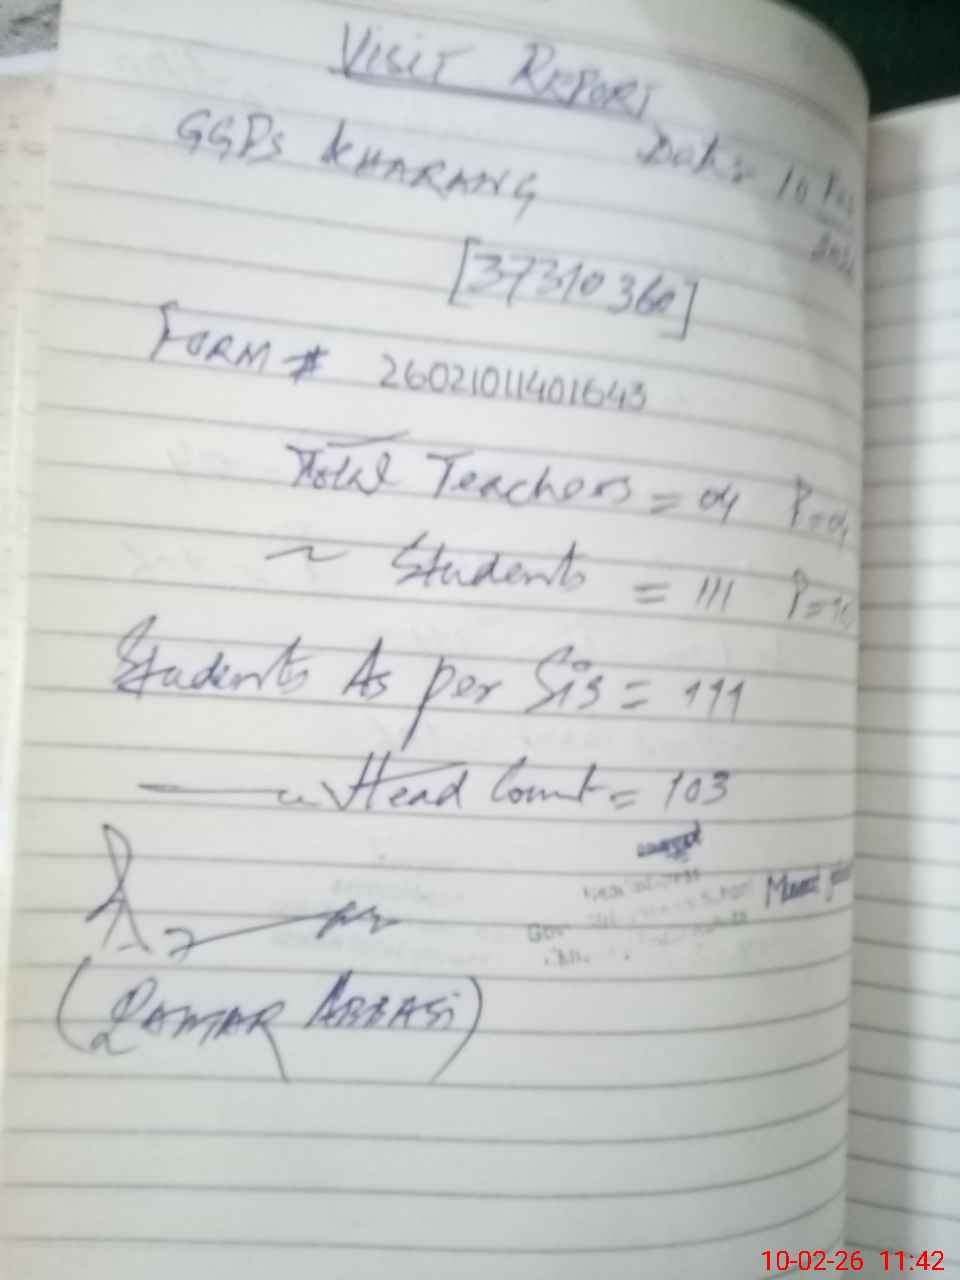 VISIT REPORT
GGPS KHARANG Date: 10 Feb
2026
[37310360]
FORM # 26021011401643
Total Teachers = 04 P=04
~ Students = 111 P=10
Students As per Sis = 111
—— " Head Count = 103
Gov
(QAMAR ABBASI)
10-02-26 11:42